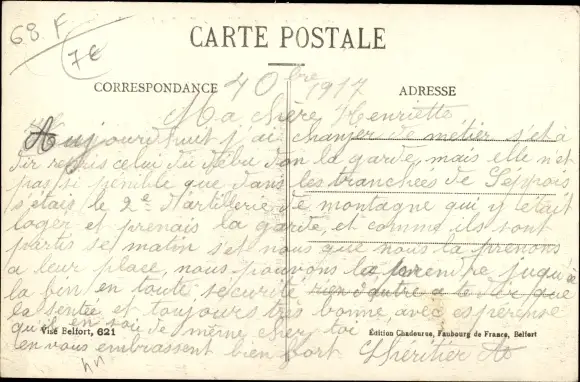 68. F
7€
CARTE POSTALE
CORRESPONDANCE
ADRESSE
4 Obre 1917
Ma chère Henriette
Aujourd'huit j'ai changer de métier s'et à
dir repris celui du débu don la garde, mais elle n'et
pas si penible que dans les tranchées de Seppois
s'etais le 2e d'artillerie de montagne qui y était
loger et prenais la garde, et comme ils sont
partis se matin s'et nous que nous la prenons
a leur place, nous pouvons la prendre juqu'a
la bin en toute securité rien d'autre a te dir que
la sentée et toujours très bonne, avec espérense
qu'il en soi de même cher toi
en vous embrassent bien fort Lhéritier
Visé Belfort, 621
Édition Chadourus, Faubourg de France, Belfort